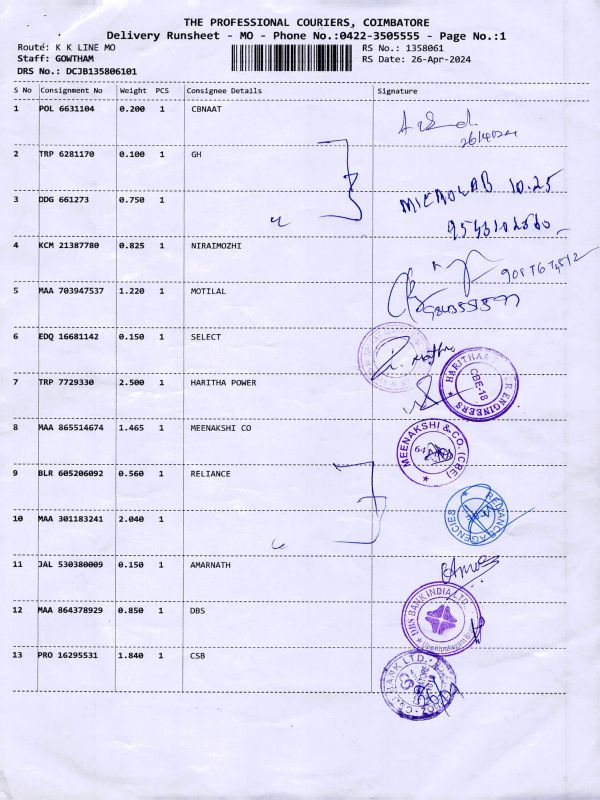 THE PROFESSIONAL COURIERS, COIMBATORE
Delivery Runsheet - MO - Phone No.:0422-3505555 - Page No.:1
Route: K K LINE MO
RS No.: 1358061
Staff: GOWTHAM
RS Date: 26-Apr-2024
DRS No.: DCJB135806101
S No Consignment No Weight PCS Consignee Details Signature
1 POL 6631104 0.200 1 CBNAAT
2 TRP 6281170 0.100 1 GH
3 DDG 661273 0.750 1
MICROLAB 10.25
4 KCM 21387780 0.825 1 NIRAIMOZHI
5 MAA 703947537 1.220 1 MOTILAL
6 EDQ 16681142 0.150 1 SELECT
7 TRP 7729330 2.500 1 HARITHA POWER
CBE-18
ENGINEERS
8 MAA 865514674 1.465 1 MEENAKSHI CO
MEENAKSHI & CO. (CBE)
9 BLR 605206092 0.560 1 RELIANCE
RELIANCE AGENCIES
10 MAA 301183241 2.040 1
11 JAL 530380009 0.150 1 AMARNATH
12 MAA 864378929 0.850 1 DBS
DBS BANK INDIA LTD
13 PRO 16295531 1.840 1 CSB
BANK LTD.